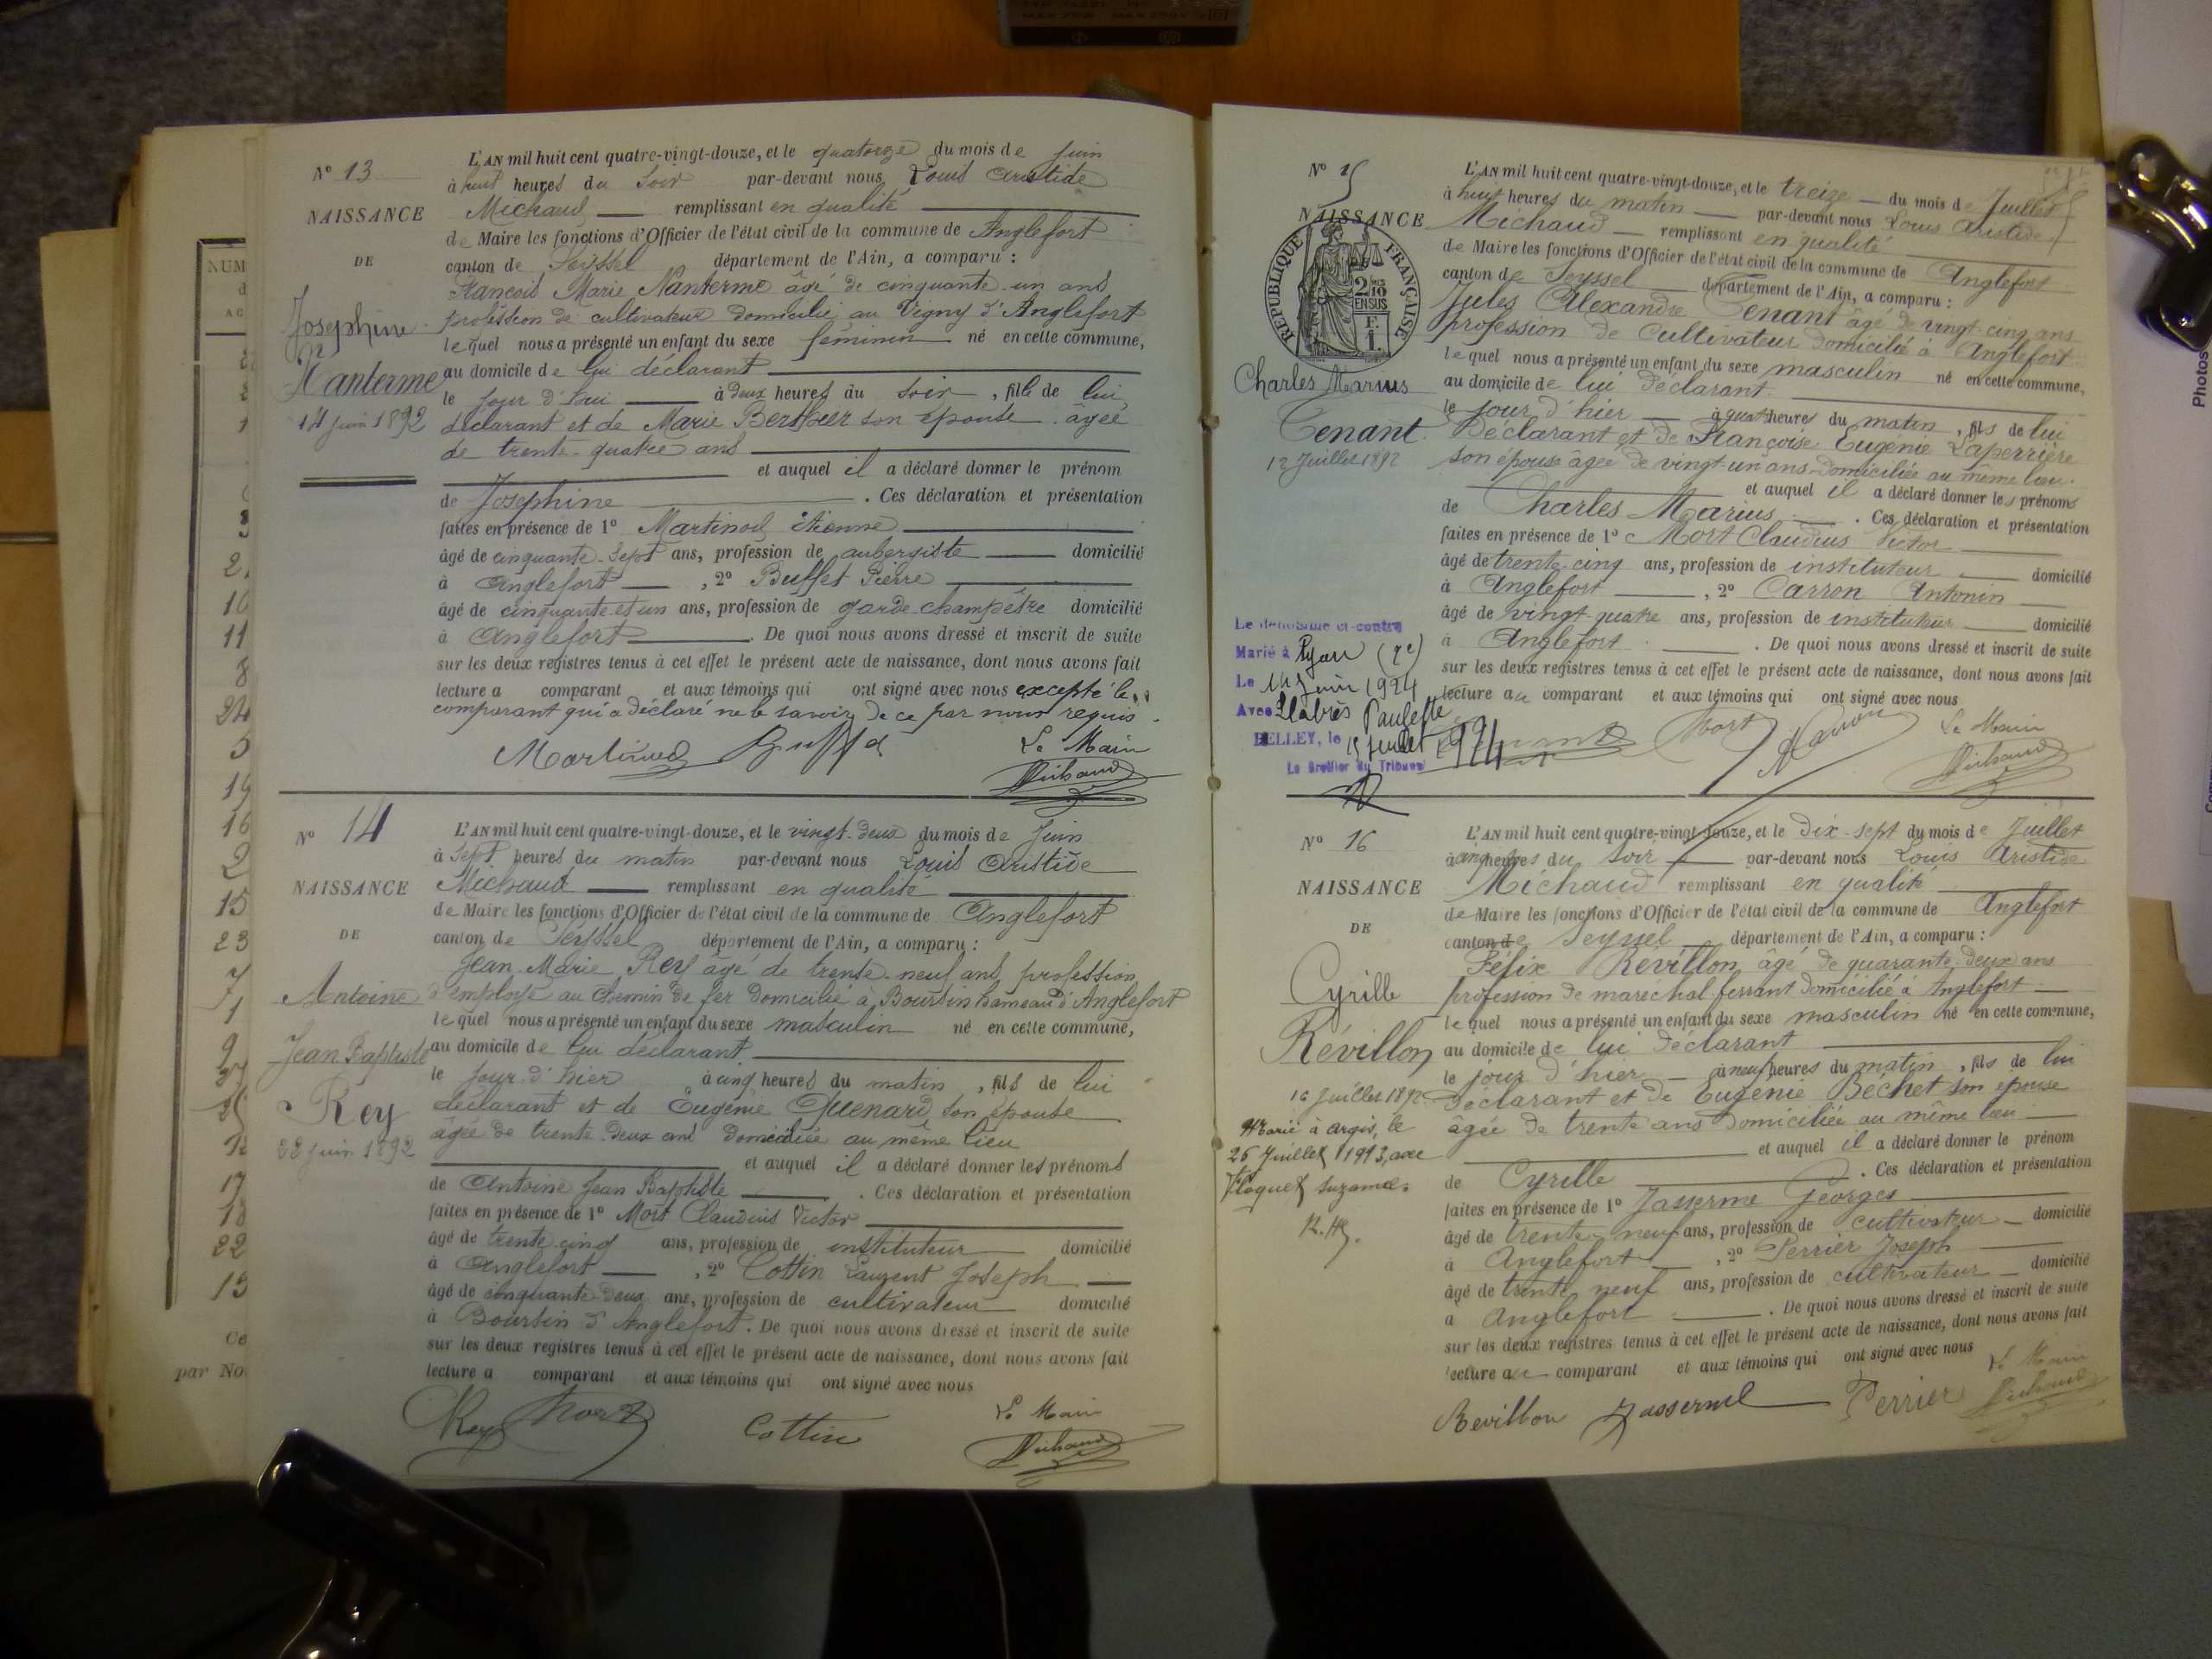 NUM
d
AC
10
11
8
24
5
19
16
2
15
23
7
1
9
12
17
18
22
13
Co
par No
N° 13
NAISSANCE
DE
Josephine
Nanterme
14 juin 1892
L'AN mil huit cent quatre-vingt-douze, et le quatorze du mois de juin
à huit heures du soir par-devant nous Louis Aristide
Michaud remplissant en qualité
de Maire les fonctions d'Officier de l'état civil de la commune de Anglefort
canton de Seyssel département de l'Ain, a comparu :
François Marie Nanterme âgé de cinquante-un ans
profession de cultivateur domicilié au Vigny d'Anglefort
lequel nous a présenté un enfant du sexe féminin né en cette commune,
au domicile de lui déclarant
le jour d'hui à deux heures du soir, fille de lui
déclarant et de Marie Berthier son épouse âgée
de trente-quatre ans
et auquel il a déclaré donner le prénom
de Josephine . Ces déclaration et présentation
faites en présence de 1° Martinod Etienne
âgé de cinquante-sept ans, profession de aubergiste domicilié
à Anglefort , 2° Buffet Pierre
âgé de cinquante et un ans, profession de garde-champêtre domicilié
à Anglefort . De quoi nous avons dressé et inscrit de suite
sur les deux registres tenus à cet effet le présent acte de naissance, dont nous avons fait
lecture a comparant et aux témoins qui ont signé avec nous excepté le
comparant qui a déclaré ne le savoir de ce par nous requis.
Martinod Buffet Le Maire
Michaud
N° 14
NAISSANCE
DE
Antoine
Jean Baptiste
Rey
22 juin 1892
L'AN mil huit cent quatre-vingt-douze, et le vingt-deux du mois de juin
à sept heures du matin par-devant nous Louis Aristide
Michaud remplissant en qualité
de Maire les fonctions d'Officier de l'état civil de la commune de Anglefort
canton de Seyssel département de l'Ain, a comparu :
Jean Marie Rey âgé de trente-neuf ans, profession
d'employé au chemin de fer domicilié à Boursin hameau d'Anglefort
lequel nous a présenté un enfant du sexe masculin né en cette commune,
au domicile de lui déclarant
le jour d'hier à cinq heures du matin, fils de lui
déclarant et de Eugénie Quenard son épouse
âgée de trente-deux ans domiciliée au même lieu
et auquel il a déclaré donner les prénoms
de Antoine Jean Baptiste . Ces déclaration et présentation
faites en présence de 1° Mort Claudius Victor
âgé de trente-cinq ans, profession de instituteur domicilié
à Anglefort , 2° Cottin Laurent Joseph
âgé de cinquante-deux ans, profession de cultivateur domicilié
à Boursin d'Anglefort. De quoi nous avons dressé et inscrit de suite
sur les deux registres tenus à cet effet le présent acte de naissance, dont nous avons fait
lecture a comparant et aux témoins qui ont signé avec nous
Rey Mort Cottin Le Maire
Michaud
N° 15
NAISSANCE
RÉPUBLIQUE FRANÇAISE
2/10 EN SUS
Charles Marius
Tenant
12 Juillet 1892
Le dénommé ci-contre
Marié à Lyon (7e)
Le 14 Juin 1924
Avec Llabrès Paulette
BELLEY, le 15 juillet 1924
Le Greffier du Tribunal
L'AN mil huit cent quatre-vingt-douze, et le treize du mois de Juillet
à huit heures du matin par-devant nous Louis Aristide
Michaud remplissant en qualité
de Maire les fonctions d'Officier de l'état civil de la commune de Anglefort
canton de Seyssel département de l'Ain, a comparu :
Jules Alexandre Tenant âgé de vingt-cinq ans
profession de cultivateur domicilié à Anglefort
lequel nous a présenté un enfant du sexe masculin né en cette commune,
au domicile de lui déclarant
le jour d'hier à quatre heures du matin, fils de lui
déclarant et de Françoise Eugénie Laperrière
son épouse âgée de vingt-un ans domiciliée au même lieu.
et auquel il a déclaré donner les prénoms
de Charles Marius . Ces déclaration et présentation
faites en présence de 1° Mort Claudius Victor
âgé de trente-cinq ans, profession de instituteur domicilié
à Anglefort , 2° Carron Antonin
âgé de vingt-quatre ans, profession de instituteur domicilié
à Anglefort . De quoi nous avons dressé et inscrit de suite
sur les deux registres tenus à cet effet le présent acte de naissance, dont nous avons fait
lecture au comparant et aux témoins qui ont signé avec nous
Tenant Mort Carron Le Maire
Michaud
N° 16
NAISSANCE
DE
Cyrille
Révillon
16 Juillet 1892
Marié à Argis, le
26 Juillet 1913, avec
Floquet Suzanne.
L'AN mil huit cent quatre-vingt-douze, et le dix-sept du mois de Juillet
à cinq heures du soir par-devant nous Louis Aristide
Michaud remplissant en qualité
de Maire les fonctions d'Officier de l'état civil de la commune de Anglefort
canton de Seyssel département de l'Ain, a comparu :
Félix Révillon âgé de quarante-deux ans
profession de maréchal ferrant domicilié à Anglefort
lequel nous a présenté un enfant du sexe masculin né en cette commune,
au domicile de lui déclarant
le jour d'hier à neuf heures du matin, fils de lui
déclarant et de Eugénie Béchet son épouse
âgée de trente ans domiciliée au même lieu
et auquel il a déclaré donner le prénom
de Cyrille . Ces déclaration et présentation
faites en présence de 1° Jasserme Georges
âgé de trente-neuf ans, profession de cultivateur domicilié
à Anglefort , 2° Perrier Joseph
âgé de trente neuf ans, profession de cultivateur domicilié
à Anglefort . De quoi nous avons dressé et inscrit de suite
sur les deux registres tenus à cet effet le présent acte de naissance, dont nous avons fait
lecture au comparant et aux témoins qui ont signé avec nous
Revillon Jasserme Perrier Le Maire
Michaud
Photos